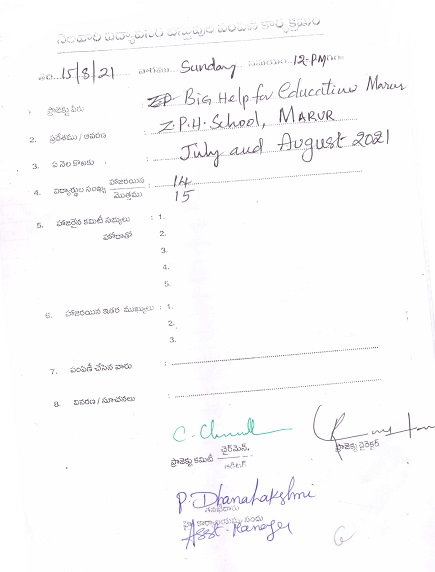 నెలవారి విద్యార్థుల
తేది 15/8/21 వారము Sunday సమయం 12-PM గం
1. ప్రాజెక్టు పేరు : Big Help for Education Marur
2. ప్రదేశము / ఆవరణ : Z.P.H. School, MARUR
3. ఏ నెల కొఱకు : July and August 2021
4. విద్యార్థుల సంఖ్య హాజరయిన : 14
మొత్తము 15
5. హాజరైన కమిటీ సభ్యులు : 1.
హోదాతో 2.
3.
4.
5.
6. హాజరయిన ఇతర ముఖ్యులు : 1.
2.
3.
7. పంపిణీ చేసిన వారు :
8. వివరణ / సూచనలు :
ప్రాజెక్టు కమిటీ ఛైర్‌మెన్.
ప్రాజెక్టు డైరెక్టర్
P. Dhanalakshmi
Asst. Manager